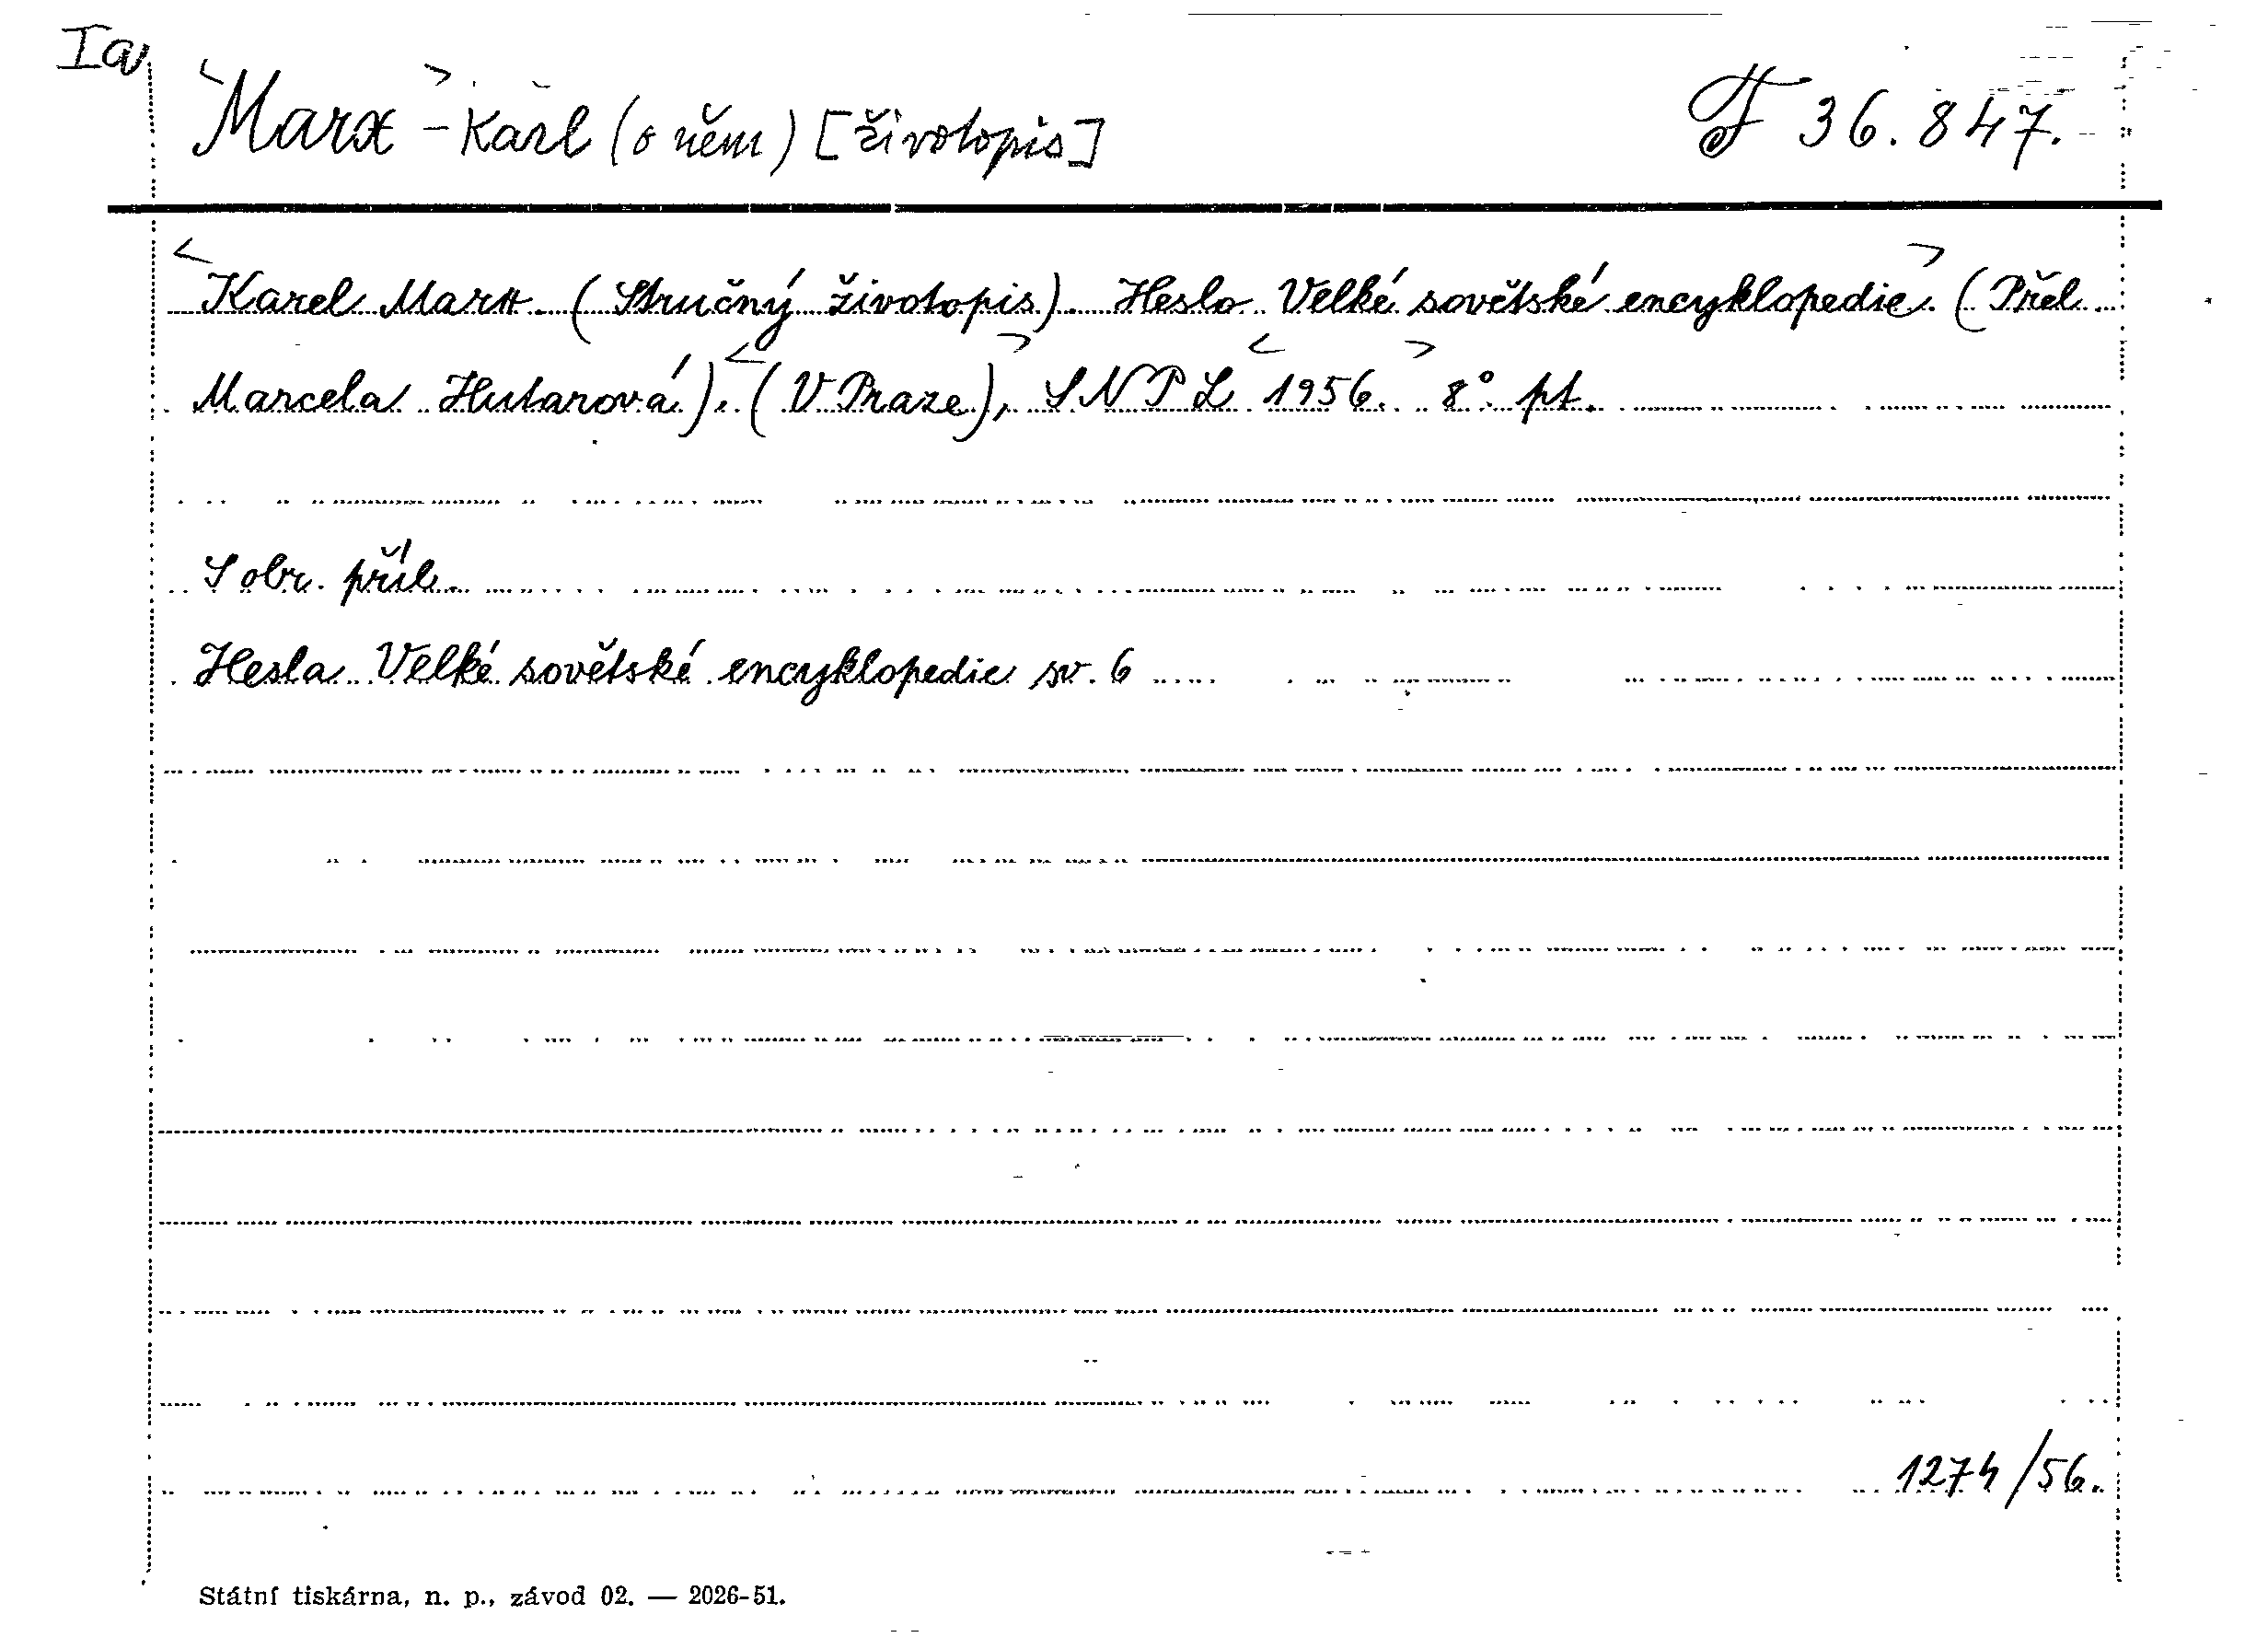 Ia
<Marx> - Karl (o něm) [životopis] F 36.847.
<Karel Marx. (Stručný životopis). Heslo Velké sovětské encyklopedie>. (Přel.
Marcela Hutarová). <(V Praze)>, SNPL <1956.> 8° pt.
S obr. příl.
Hesla Velké sovětské encyklopedie sv. 6
1274/56.
Státní tiskárna, n. p., závod 02. — 2026-51.